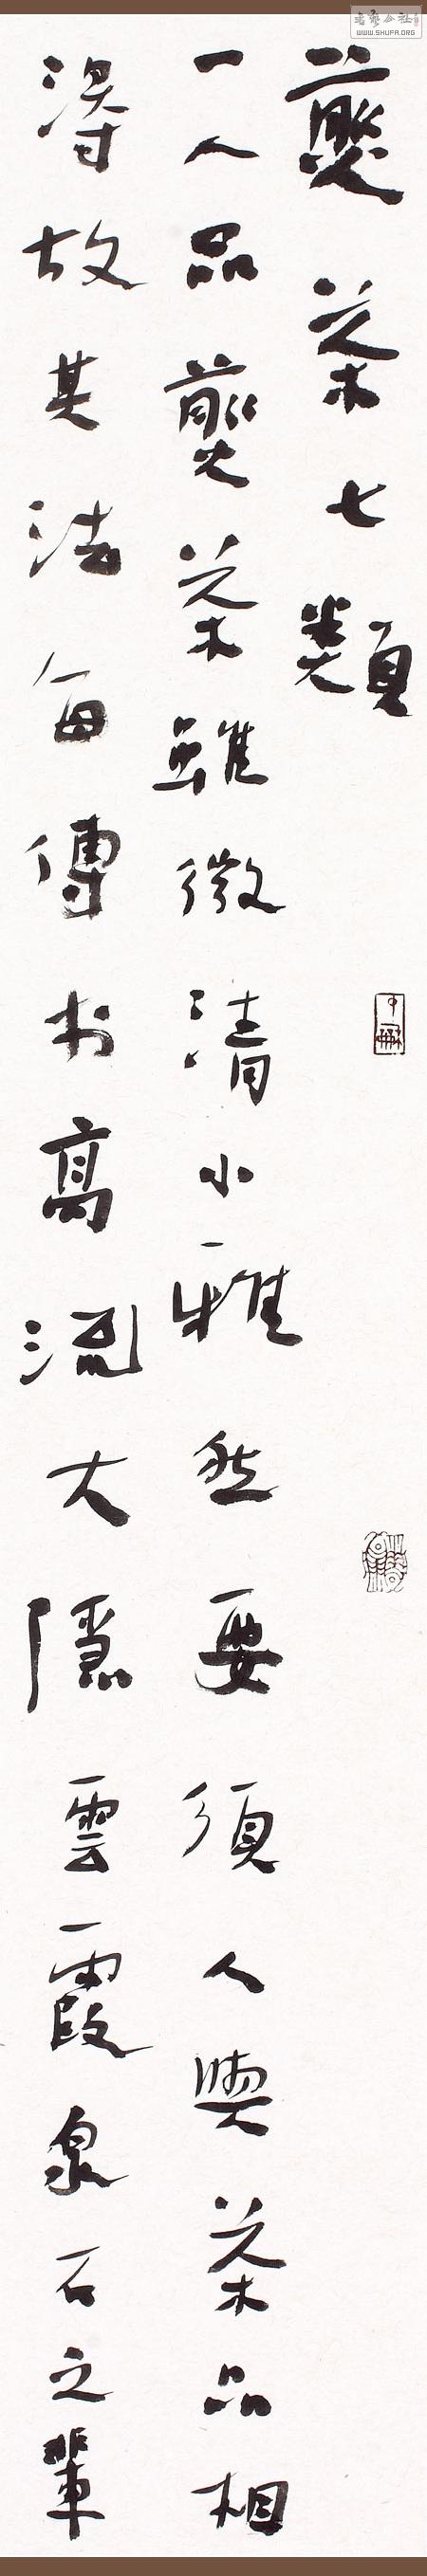 煎茶七類
一人品煎茶雖微清小雅然要須人與茶品相
得故其法每傳於高流大隱雲霞泉石之輩
WWW.SHUFA.ORG